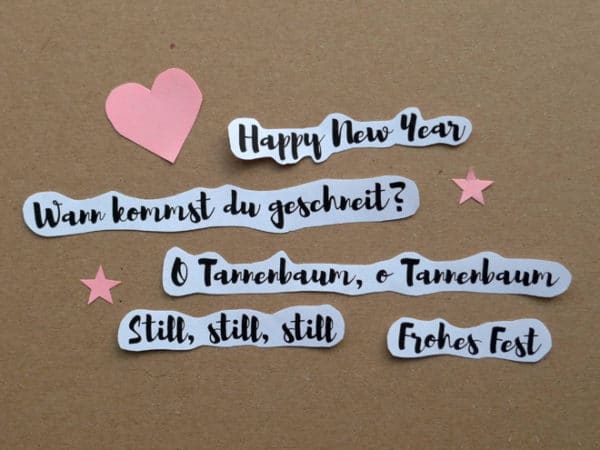 Happy New Year
Wann kommst du geschneit?
O Tannenbaum, o Tannenbaum
Still, still, still
Frohes Fest